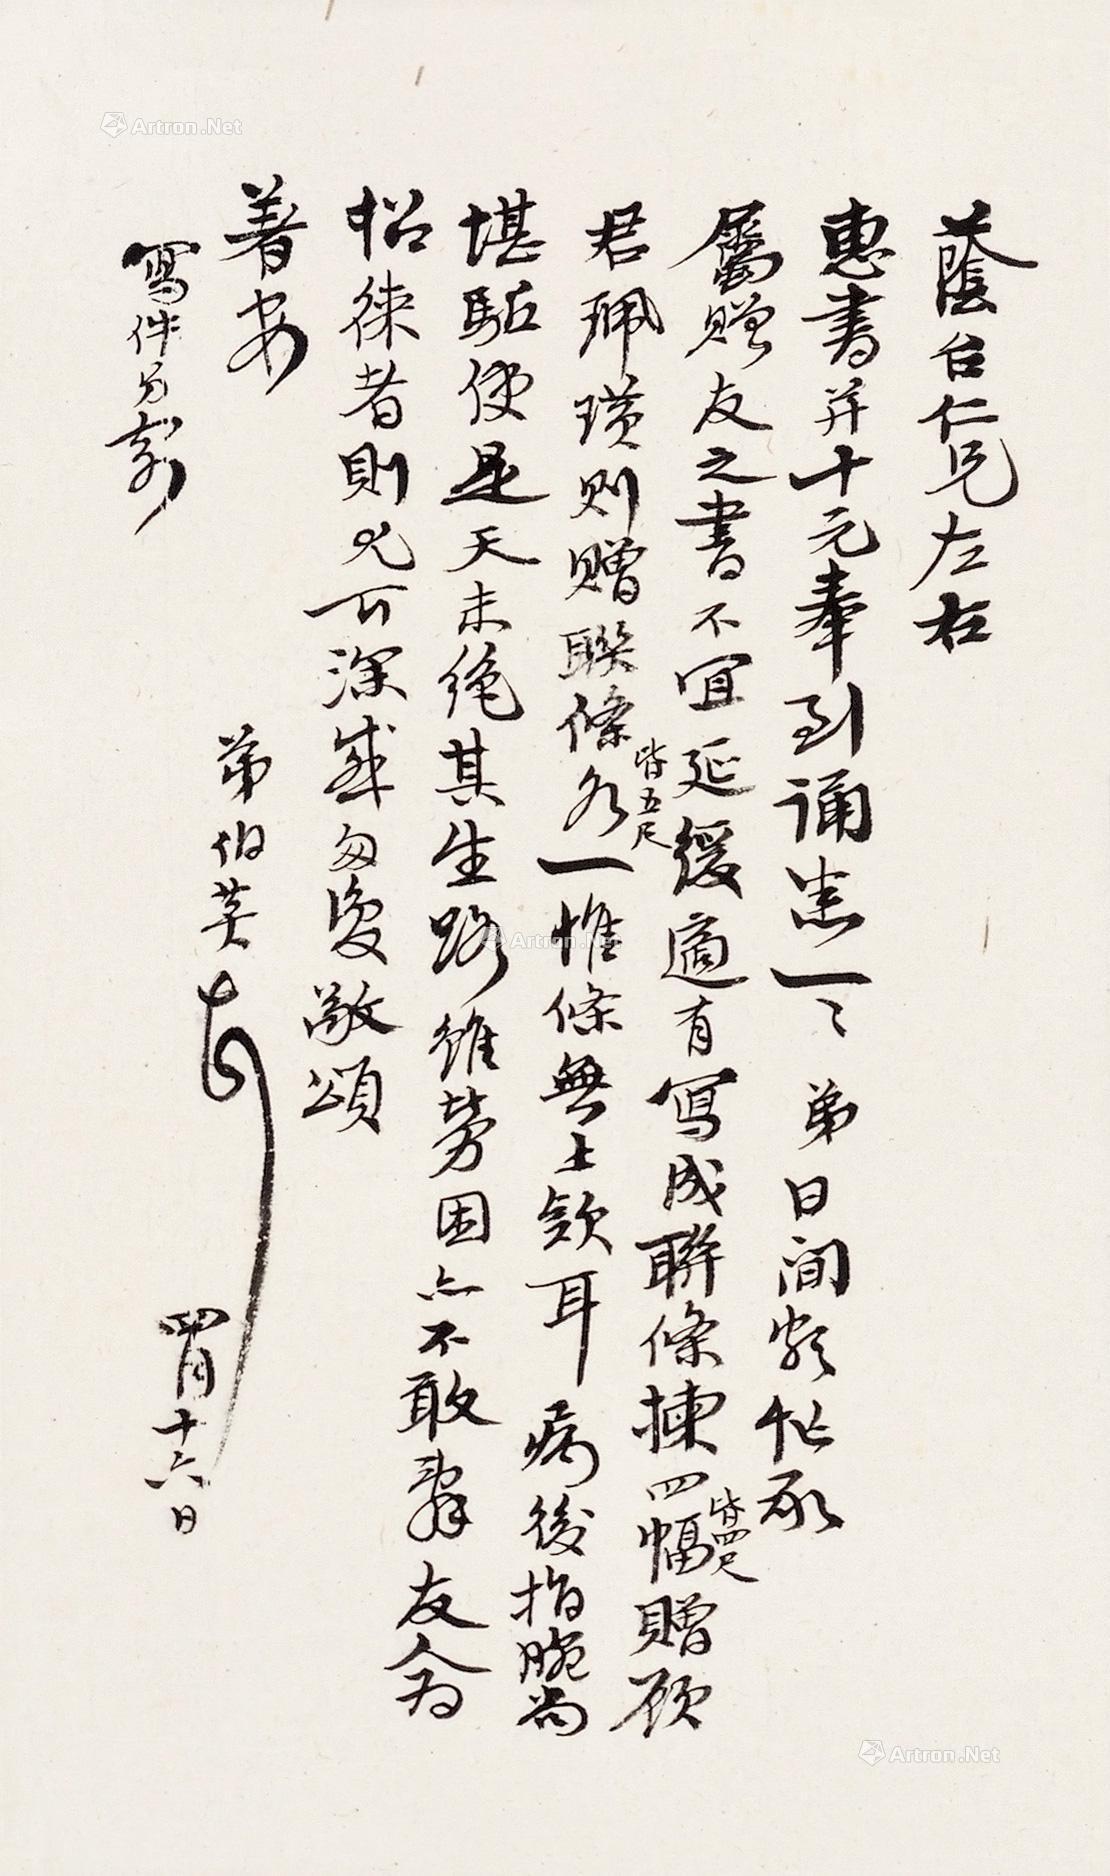 蔭台仁兄左右
惠書并十元奉到誦悉一〻弟日間頗忙承
屬贈友之書不宜延緩適有寫成聯條揀四幅皆四尺贈顧
君珮璜則贈聯條各一皆五尺惟條無上款耳病後指腕尚
堪驅使是天未絕其生路雖勞困亦不敢辭友人為
招徠者則尤可深感匆復敬頌
著安
弟伯英
四月十六日
寫件另寄
Artron.Net
Artron.Net
Artron.Net